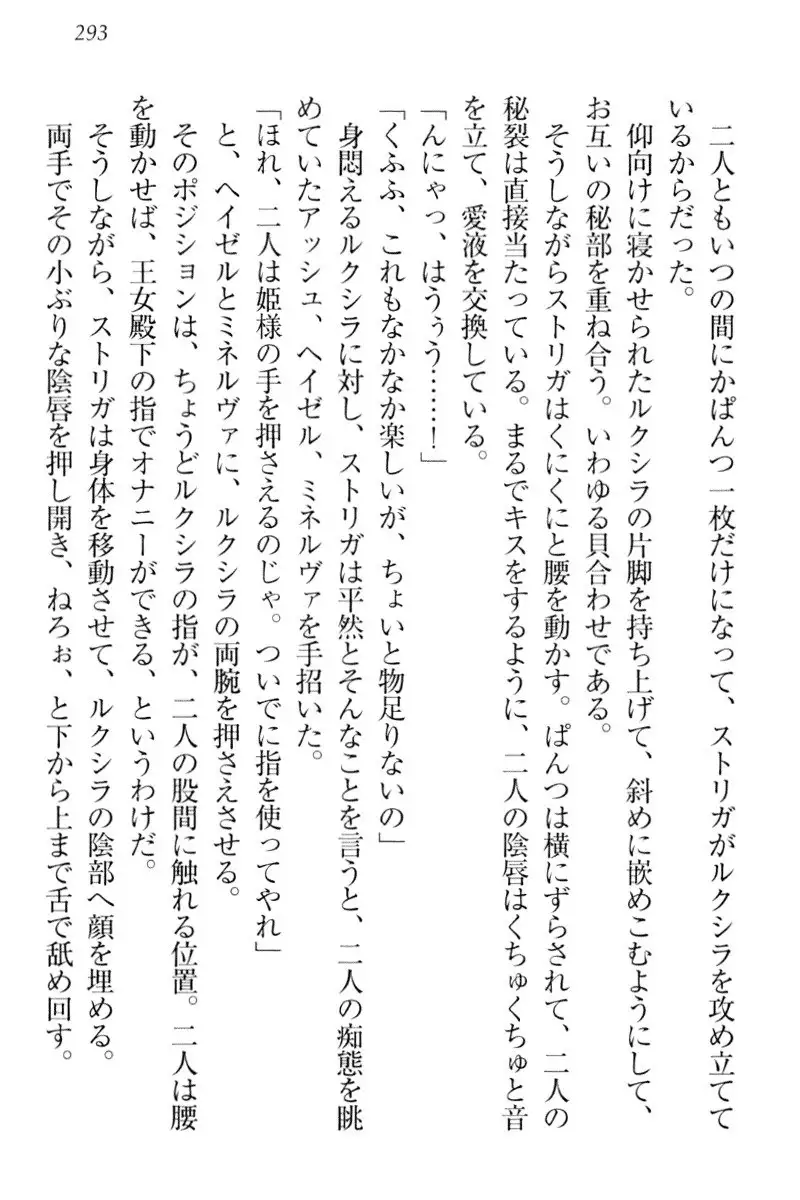 293
二人ともいつの間にかぱんつ一枚だけになって、ストリガがルクシラを攻め立てて
いるからだった。
仰向けに寝かせられたルクシラの片脚を持ち上げて、斜めに嵌めこむようにして、
お互いの秘部を重ね合う。いわゆる貝合わせである。
そうしながらストリガはくにくにと腰を動かす。ぱんつは横にずらされて、二人の
秘裂は直接当たっている。まるでキスをするように、二人の陰唇はくちゅくちゅと音
を立て、愛液を交換している。
「んにゃっ、はうぅう……！」
「くふふ、これもなかなか楽しいが、ちょいと物足りないの」
身悶えるルクシラに対し、ストリガは平然とそんなことを言うと、二人の痴態を眺
めていたアッシュ、ヘイゼル、ミネルヴァを手招いた。
「ほれ、二人は姫様の手を押さえるのじゃ。ついでに指を使ってやれ」
と、ヘイゼルとミネルヴァに、ルクシラの両腕を押さえさせる。
そのポジションは、ちょうどルクシラの指が、二人の股間に触れる位置。二人は腰
を動かせば、王女殿下の指でオナニーができる、というわけだ。
そうしながら、ストリガは身体を移動させて、ルクシラの陰部へ顔を埋める。
両手でその小ぶりな陰唇を押し開き、ねろぉ、と下から上まで舌で舐め回す。